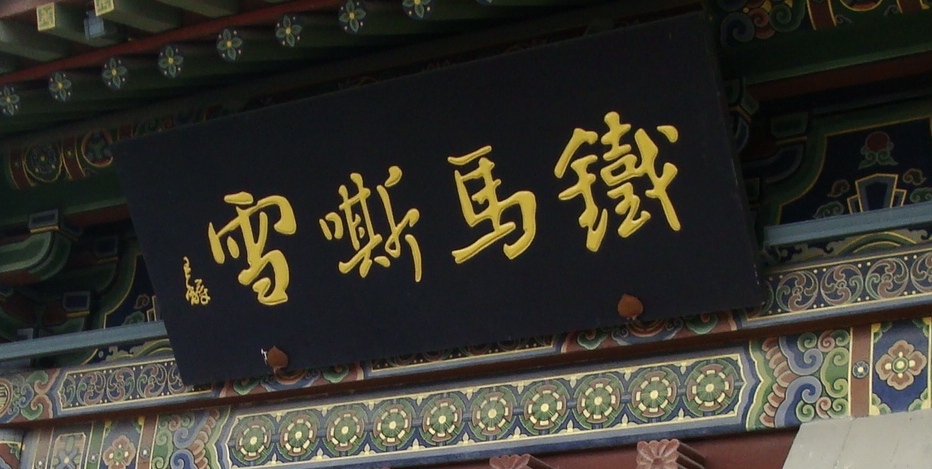 鐵馬嘶雪